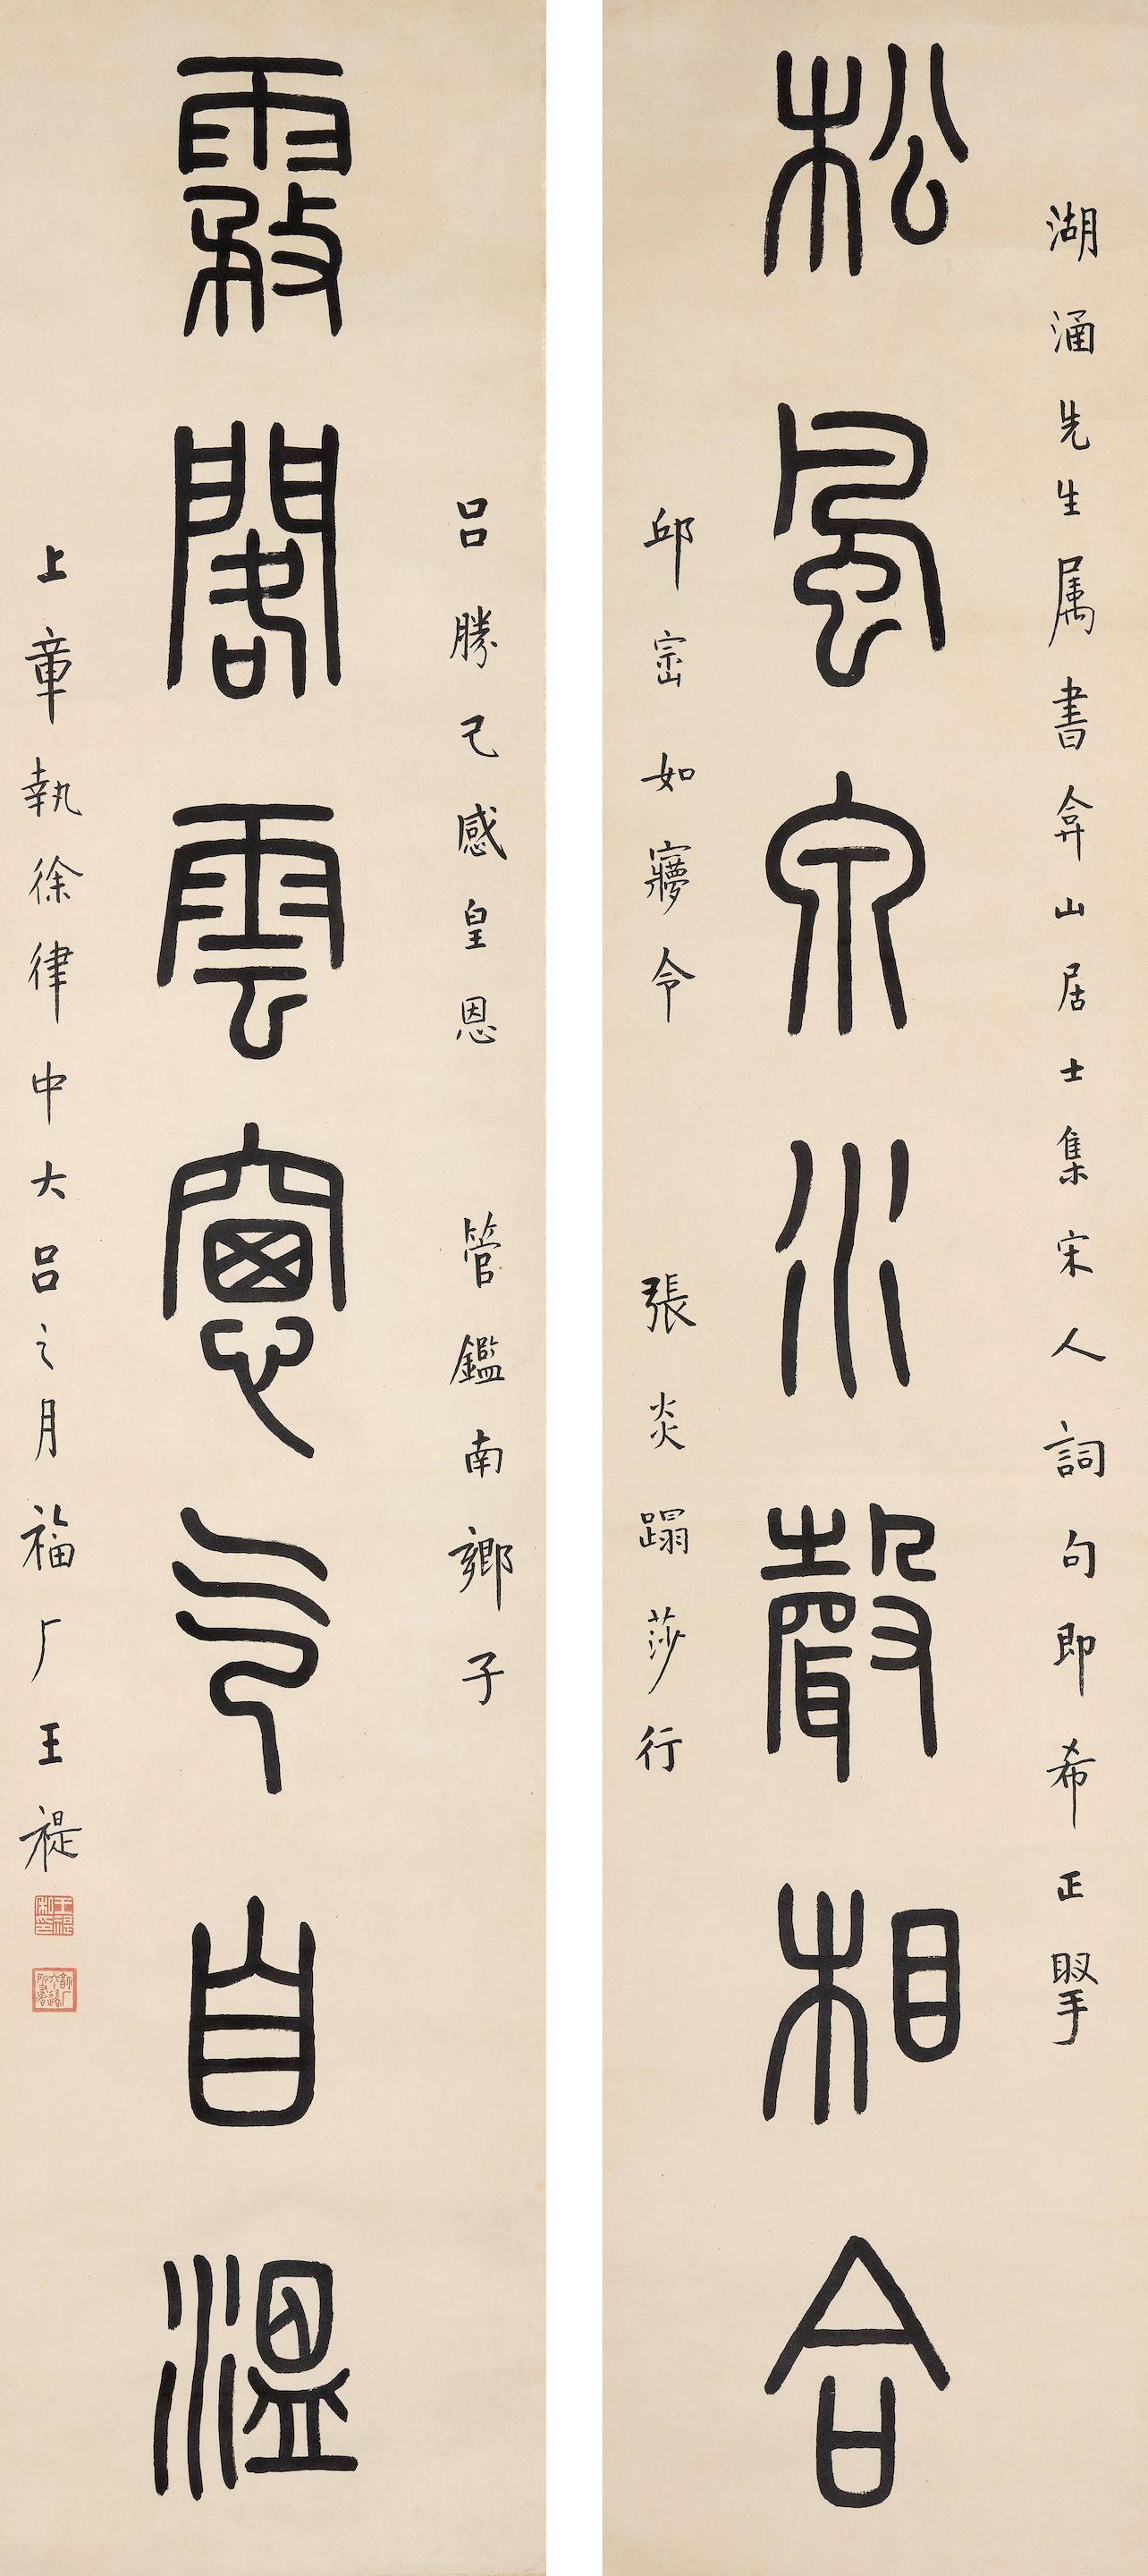 湖涵先生属書弇山居士集宋人詞句即希正掔
松風泉水聲相合
邱崈如㝱令 張炎蹋莎行
呂勝己感皇恩 管鑑南鄉子
霚閣雲窻气自溫
上章執徐律中大呂之月福厂王禔
王禔私印